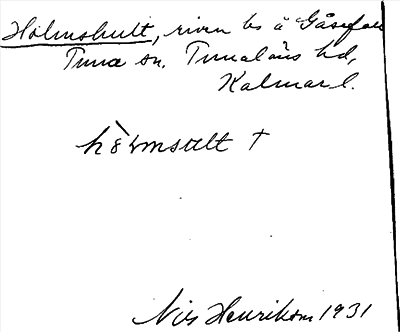 Holmshult, riven bs å Gåsefall
Tuna sn, Tunaläns hd,
Kalmar l.
hò̀lmsult †
Nils Henrikson 1931